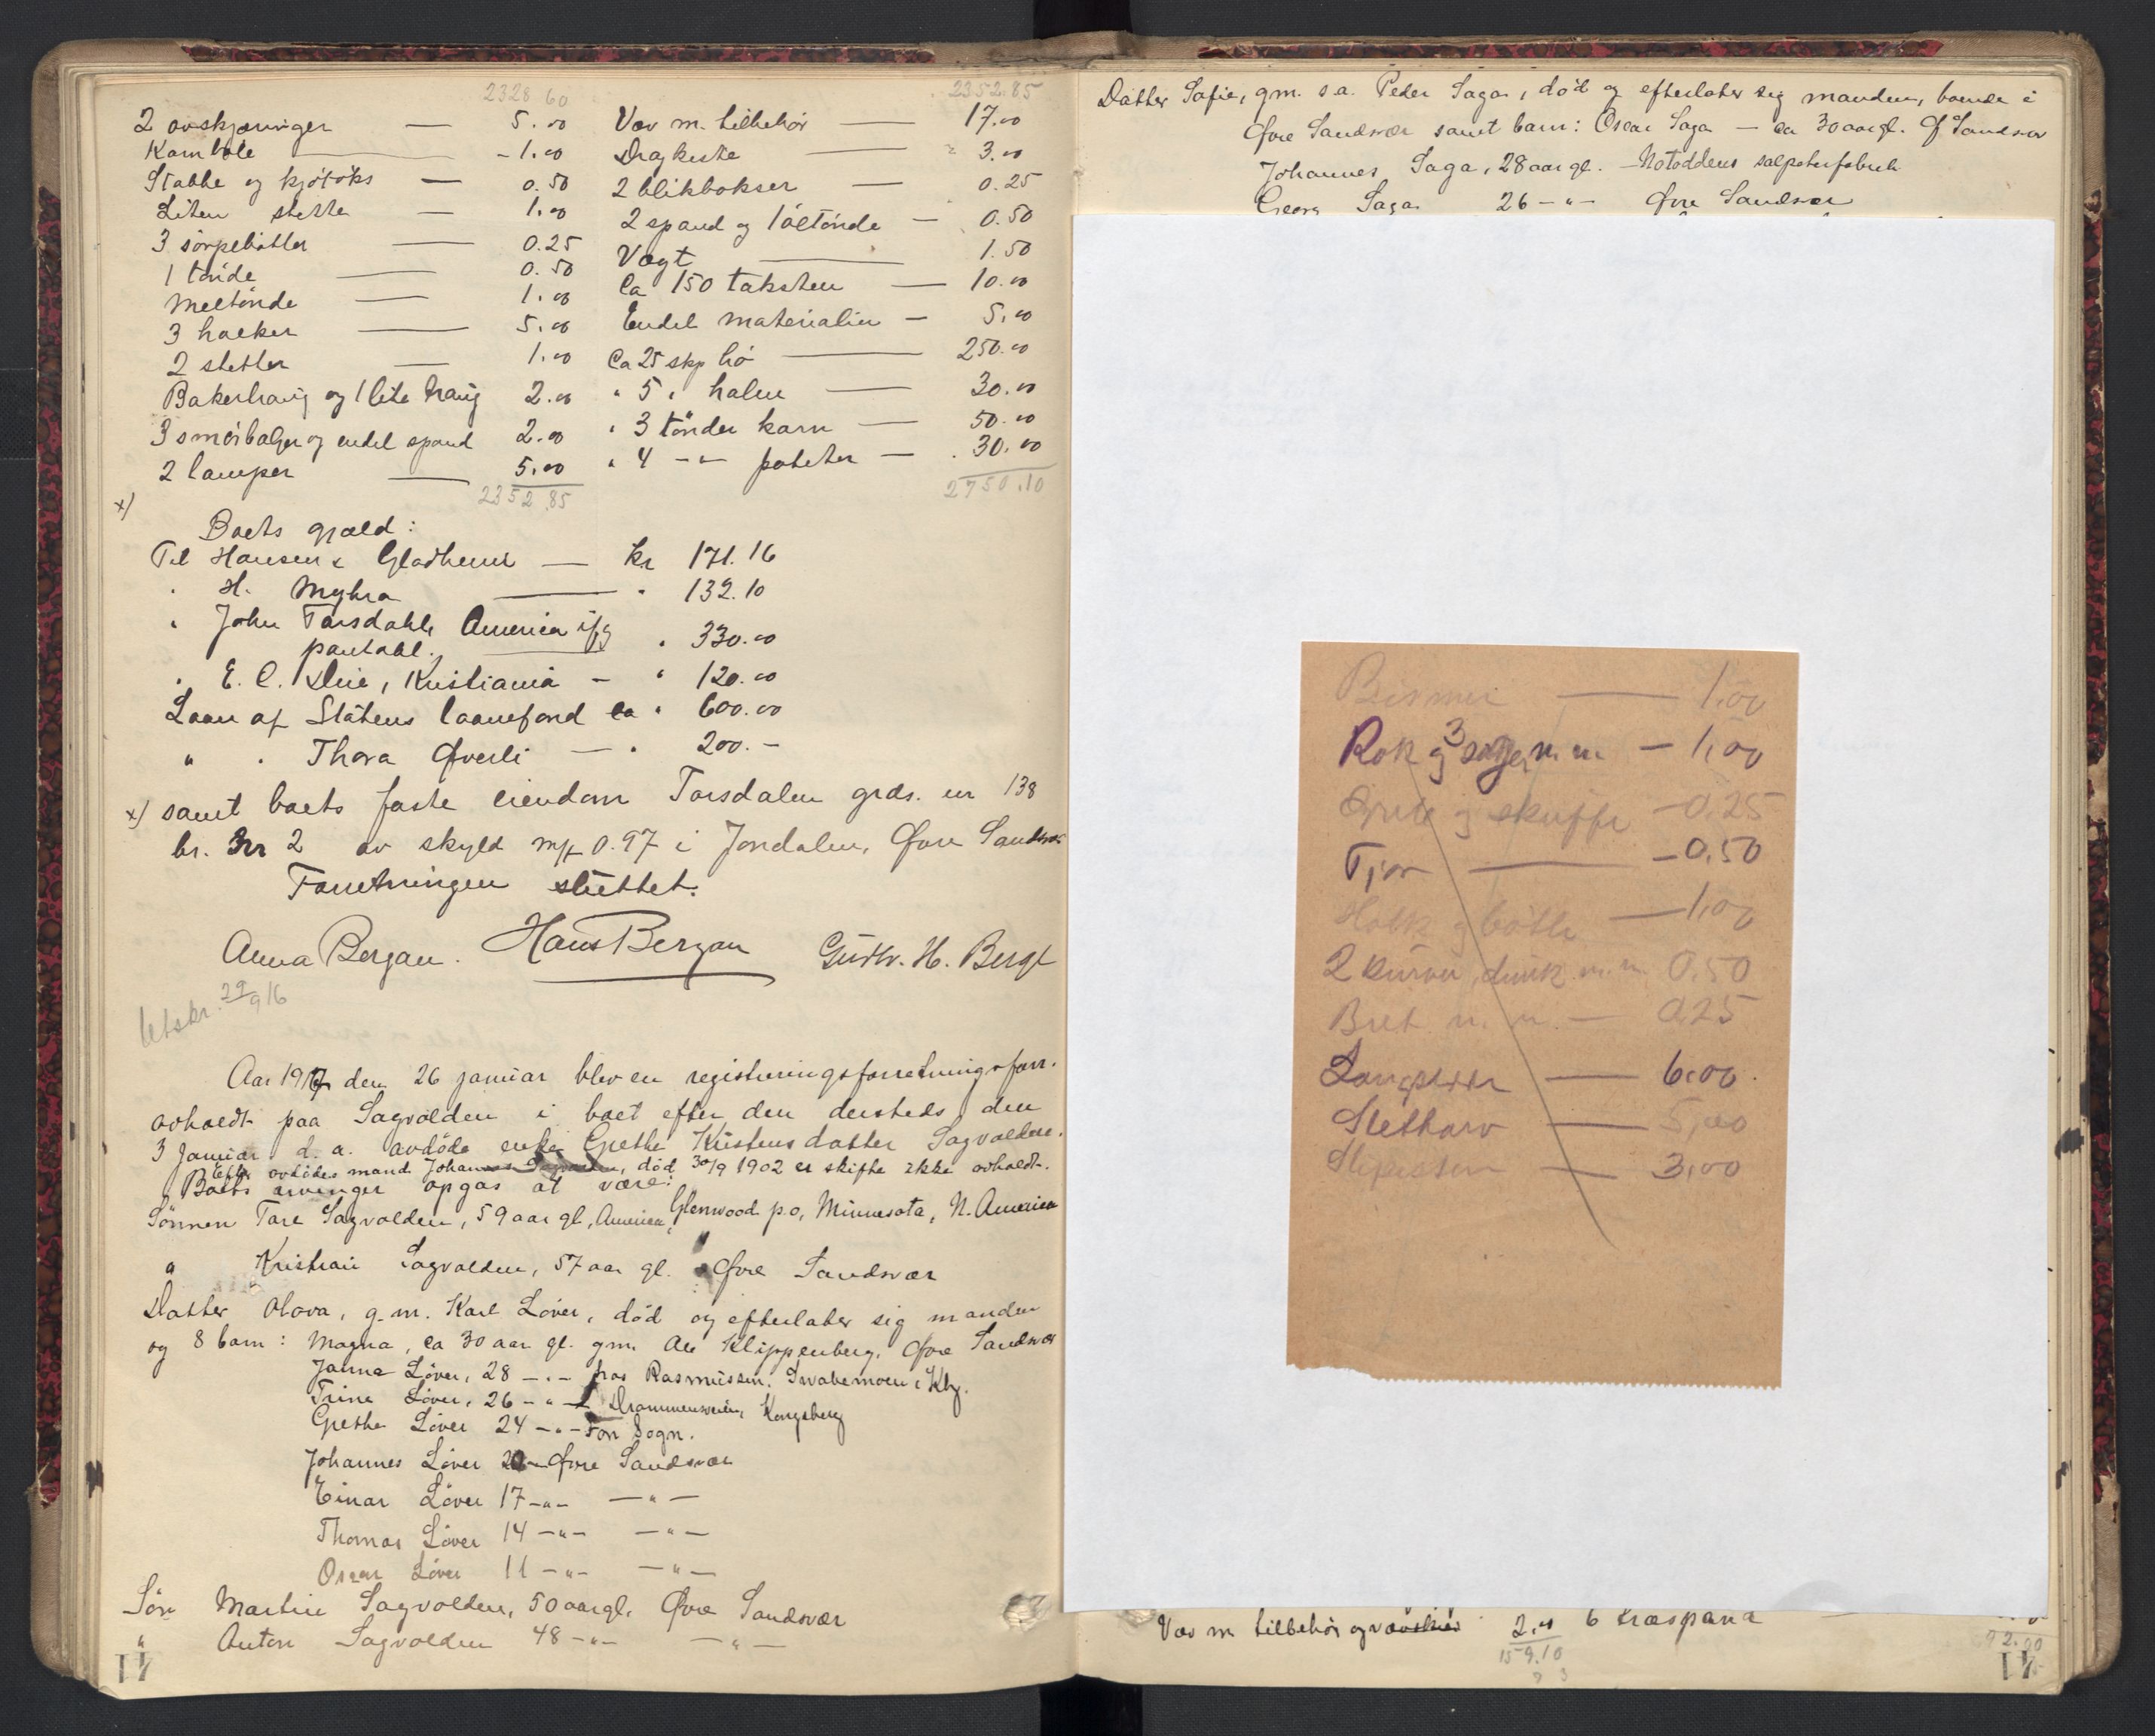 2328 60
2 avskjæringer — 5.00
Kambole — 1.00
Stabbe og kjøtöks — 0.50
Liten slette — 1.00
3 sörpebötter — 0.25
1 tönde — 0.50
Meltönde — 1.00
3 holker — 5.00
2 sletter — 1.00
Bakertraug og 1 lite traug 2.00
3 smörbalger og endel spand 2.00
2 lamper — 5.00
2352.85
2352.85
Væv m. tilbehör — 17.00
Dragkiste — 3.00
2 blikbokser — 0.25
2 spand og 1 öltönde — 0.50
Vægt — 1.50
Ca 150 taksten — 10.00
Endel materialier — 5.00
Ca 25 skp hö — 250.00
" 5 " halm — 30.00
" 3 tönder korn — 50.00
" 4 -"- poteter — 30.00
2750.10
x)
Boets gjæld:
Til Hansen & Gladheim — kr 171.16
" H. Myhra — " 132.10
" John Torsdahl, America ifg
pantobl. " 330.00
" E. C. Due, Kristiania — " 120.00
Laan af Statens laanefond ca " 600.00
" " Thora Øverli — " 200.-
x) samt boets faste eiendom Torsdalen grds. nr 138
br. nr 2 av skyld mk 0.97 i Jondalen, Øvre Sandsvær
Forretningen sluttet.
Anna Bergan. Hans Bergan Gustv. H. Berge
Utskr. 29/9 16
Aar 1917 den 26 januar blev en registreringsforretning forr.
avholdt paa Sagvolden i boet efter den dersteds den
3 Januar d. a. avdöde enke Grethe Kristensdatter Sagvolden.
Efter avdödes mand Johannes Sagvolden, död 30/9 1902 er skifte ikke avholdt.
Boets arvinger opgas at være:
Sönnen Tore Sagvolden, 59 aar gl, America, Glenwood p.o, Minnesota, N. America
" Kristian Sagvolden, 57 aar gl. Øvre Sandsvær
Datter Olava, g.m. Karl Löver, död og efterlater sig manden
og 8 barn: Magna, ca 30 aar gl. gm. Ole Klippenberg, Øvre Sandsvær
Janna Löver, 28 -"- hos Rasmussen, Svabemoen i Kbg.
Trine Löver, 26 -"- Drammensveien, Kongsberg
Grethe Löver 24 -"- Fon Sogn.
Johannes Löver 20 - Øvre Sandsvær
Einar Löver 17 -"- -"-
Thomas Löver 14 -"- -"-
Oscar Löver 11 -"- -"-
Sön Martin Sagvolden, 50 aar gl. Øvre Sandsvær
" Anton Sagvolden 48 -"- -"-
41
Datter Sofie, gm. s.a. Peder Saga, död og efterlater sig manden, boende i
Øvre Sandsvær samt barn: Oscar Saga — ca 30 aar gl. Ø Sandsvær
Johannes Saga, 28 aar gl. Notoddens salpeterfabrik
Georg Saga 26 -"- Øvre Sandsvær
Bismer — 1.00
Rok og 3 sager m.m — 1,00
Gryte og skuffe — 0.25
Tjor — 0,50
Holk og bötte — 1,00
2 kurver, dunk m.m. 0.50
Bret m. m. — 0.25
Langslede — 6.00
Sletharv — 5,00
Slipesten — 3,00
Væv m tilbehör og vævskier 2.00 6 træspand
159.10
41